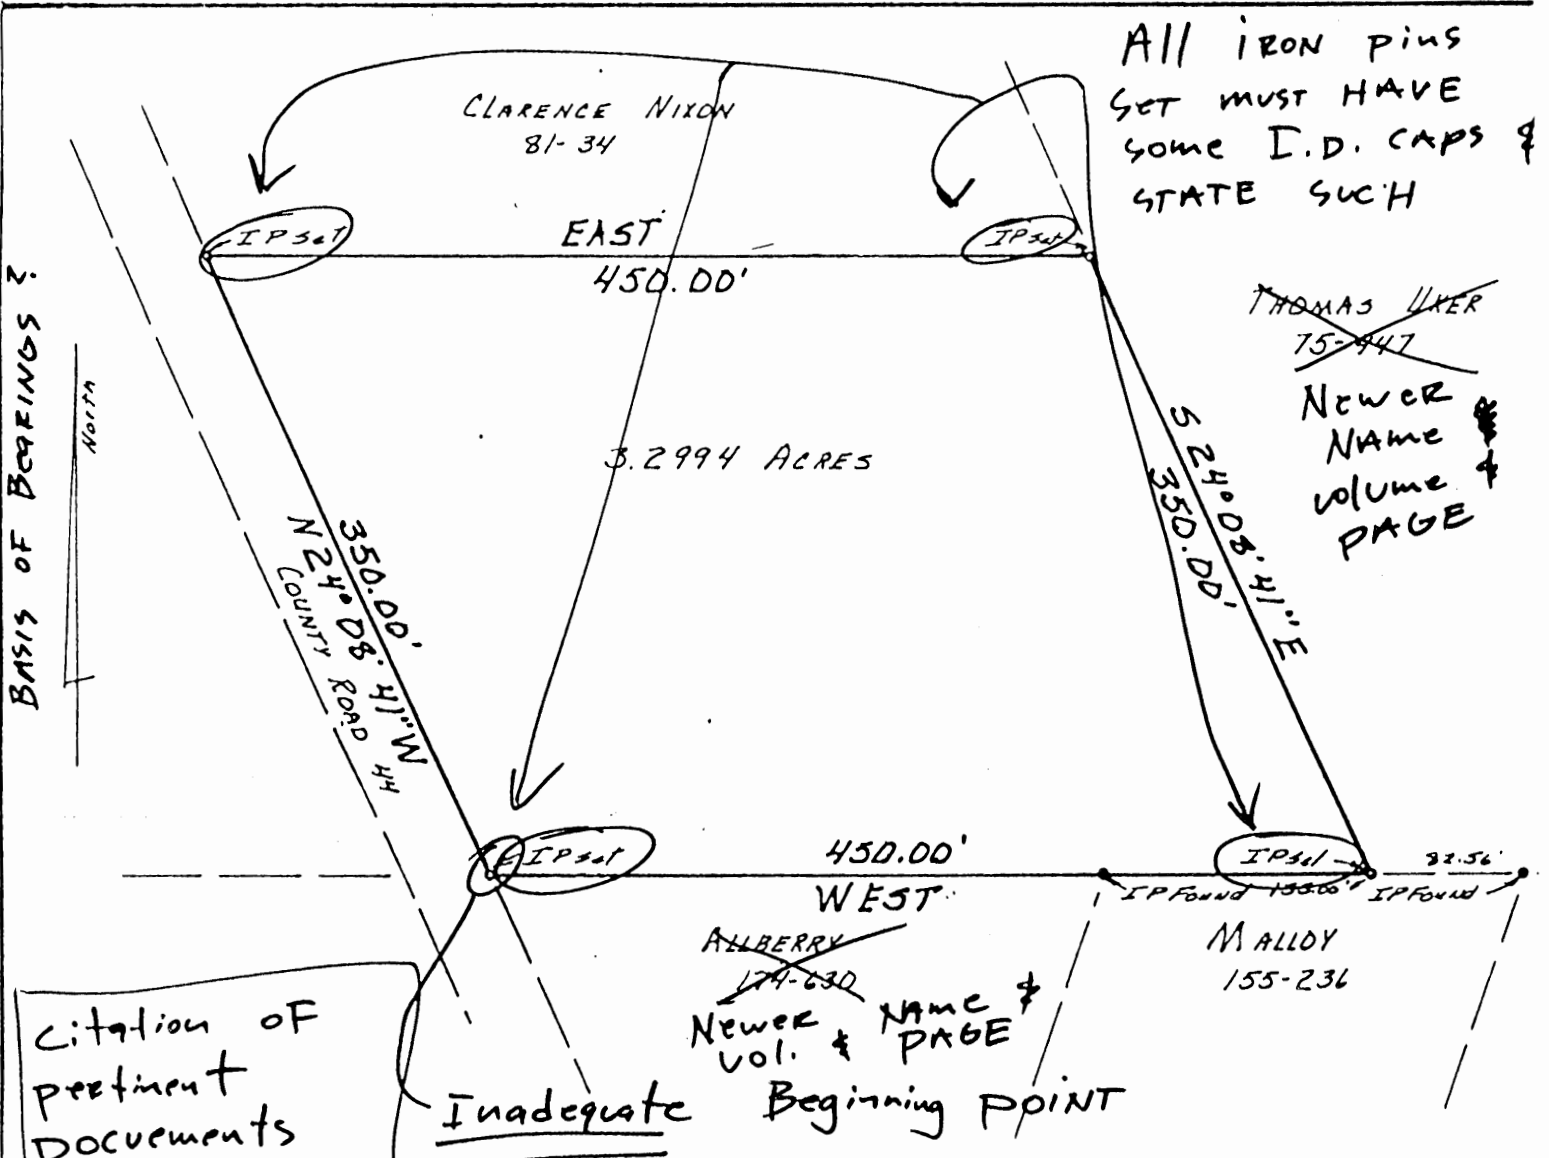 All IRON pins
SET MUST HAVE
some I.D. CAPS &
STATE SUCH
CLARENCE NIXON
81-34
IP set
EAST
IP set
450.00'
THOMAS UXER
75-947
NEWER
NAME &
volume &
PAGE
BASIS OF BEARINGS ?
North
3.2994 ACRES
S 24° 08' 41" E
350.00'
350.00'
N 24° 08' 41" W
COUNTY ROAD 44
IP set
450.00'
WEST
IP set
82.56'
IP FOUND
IP FOUND
ALLBERRY
174-630
NEWER NAME &
VOL. & PAGE
MALLOY
155-236
Citation OF
pertinent
DOCUEMENTS
Inadequate Beginning POINT